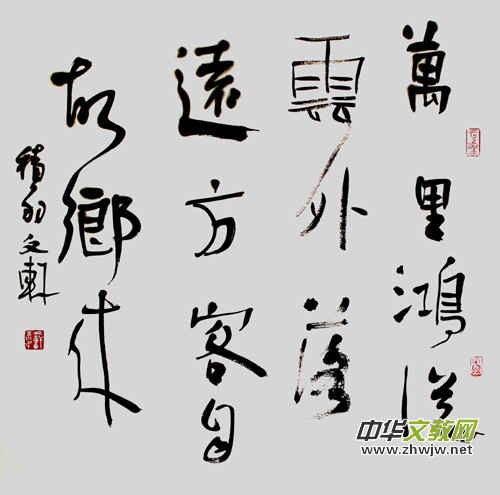 萬里鴻從
雲外落
遠方客自
故鄉来
文軒
中华文教网
www.zhwjw.net